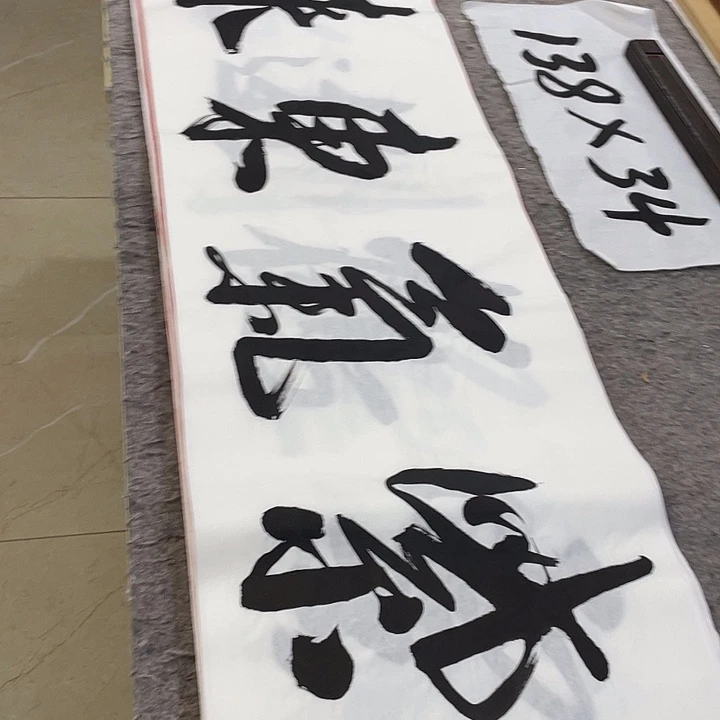 紫氣東來
138×34